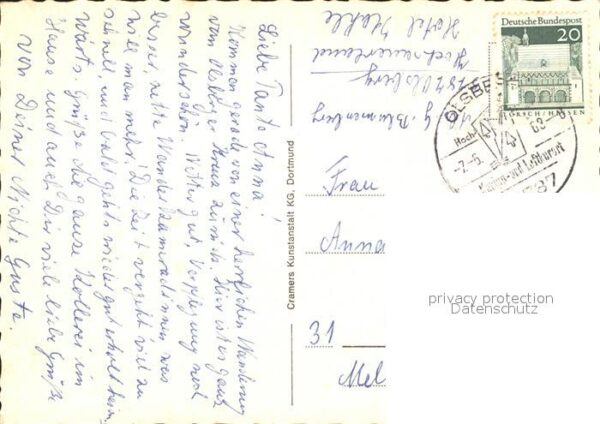 Liebe Tante Anna!
Kommen gerade von einer herrlichen Wanderung
vom Olsberger Kreuz zurück. Hier ist es ganz
wunderschön. Wetter gut, Verpflegung noch
besser, nette Wanderkameradinnen was
will man mehr! Die Zeit vergeht viel zu
schnell, und bald geht's wieder gut erholt heim-
wärts. Grüße die ganze in
Hause und auch Dir viele liebe Grüße
von Deiner Nichte Gusta.
Cramers Kunstanstalt KG, Dortmund
G. Blumenberg
5787 Olsberg
Hochsauerland
Hotel
Deutsche Bundespost
20
LORSCH/HESSEN
OLSBERG
Hoch
-7.-6. 68-
Kneipp- und Luftkurort
5787
Frau
Anna
31
Mel
privacy protection
Datenschutz